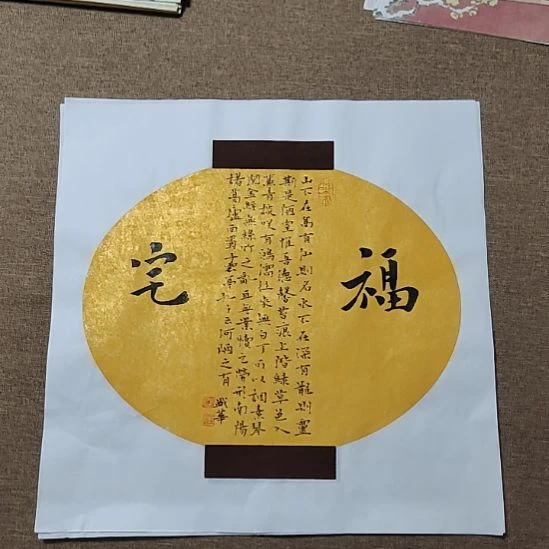 福
山不在高有仙則名水不在深有龍則靈
斯是陋室惟吾德馨苔痕上階綠草色入
簾青談笑有鴻儒往來無白丁可以調素琴
閱金經無絲竹之亂耳無案牘之勞形南陽
諸葛廬西蜀子雲亭孔子云何陋之有
華
宅